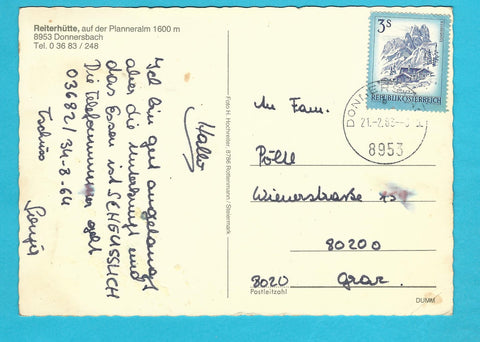 Reiterhütte, auf der Planneralm 1600 m
8953 Donnersbach
Tel. 0 36 83 / 248
Hallo
Ich bin gut angelangt
aber die Unterkunft und
das Essen ist SCHEUSSLICH
Die Telefonnummer geht
03682/34-8-64
Tschüss
Foto H. Hochreiter, 8786 Rottenmann / Steiermark
3S
REPUBLIK ÖSTERREICH
8953
An Fam.
Pöltl
Wienerstraße
80200
8020 Graz
Postleitzahl
DUMM